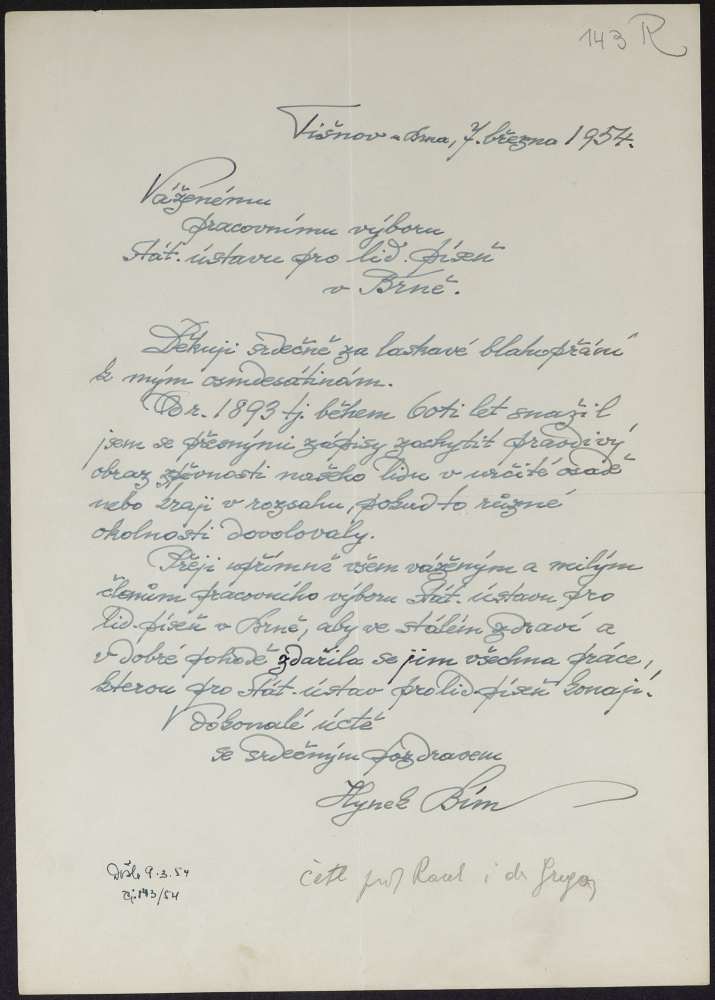 143 R
Tišnov u Brna, 7. března 1954.
Váženému
pracovnímu výboru
Stát. ústavu pro lid. píseň
v Brně.
Děkuji srdečně za laskavé blahopřání
k mým osmdesátinám.
Od r. 1893 tj. během 60ti let snažil
jsem se přesnými zápisy zachytit pravdivý
obraz zpěvnosti našeho lidu v určité osadě
nebo kraji v rozsahu, pokud to různé
okolnosti dovolovaly.
Přeji upřímně všem váženým a milým
členům pracovního výboru Stát. ústavu pro
lid. píseň v Brně, aby ve stálém zdraví a
v dobré pohodě zdařila se jim všechna práce,
kterou pro Stát. ústav pro lid. píseň konají.
V dokonalé úctě
se srdečným pozdravem
Hynek Bím
Došlo 9.3.54
čj. 143/54
četl prof i dr Gregor